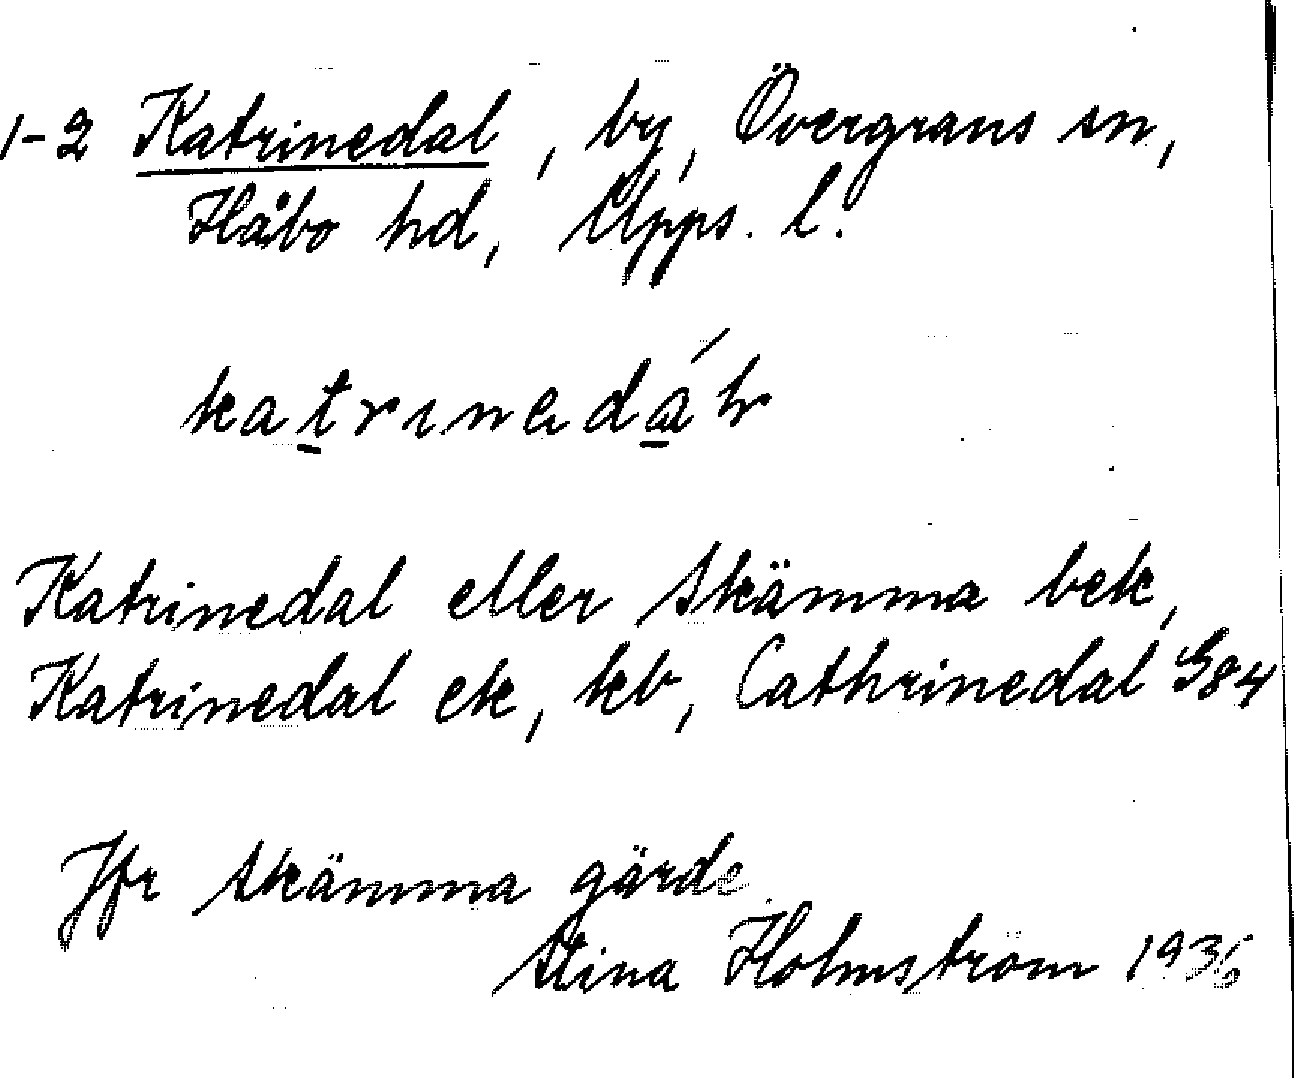 1-2 Katrinedal, by, Övergrans sn,
Håbo hd, Upps. l.
Katrinedal eller Skämma bek,
Katrinedal ek, kb, Cathrinedal G84
Jfr Skämma gärde
Stina Holmström 1936